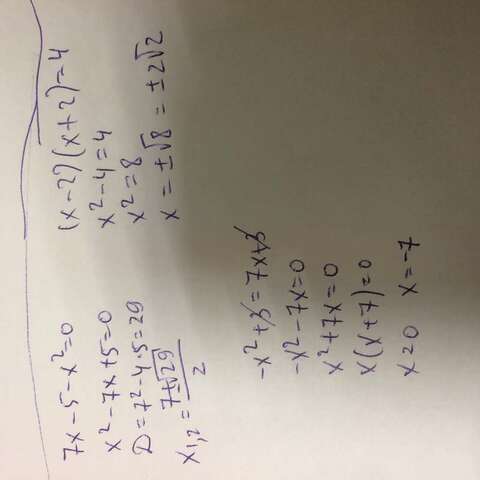 7x-5-x²=0
x²-7x+5=0
D=7²-4·5=29
x₁,₂=(7±√29)/2
(x-2)(x+2)=4
x²-4=4
x²=8
x=±√8=±2√2
-x²+3=7x+3
-x²-7x=0
x²+7x=0
x(x+7)=0
x=0 x=-7